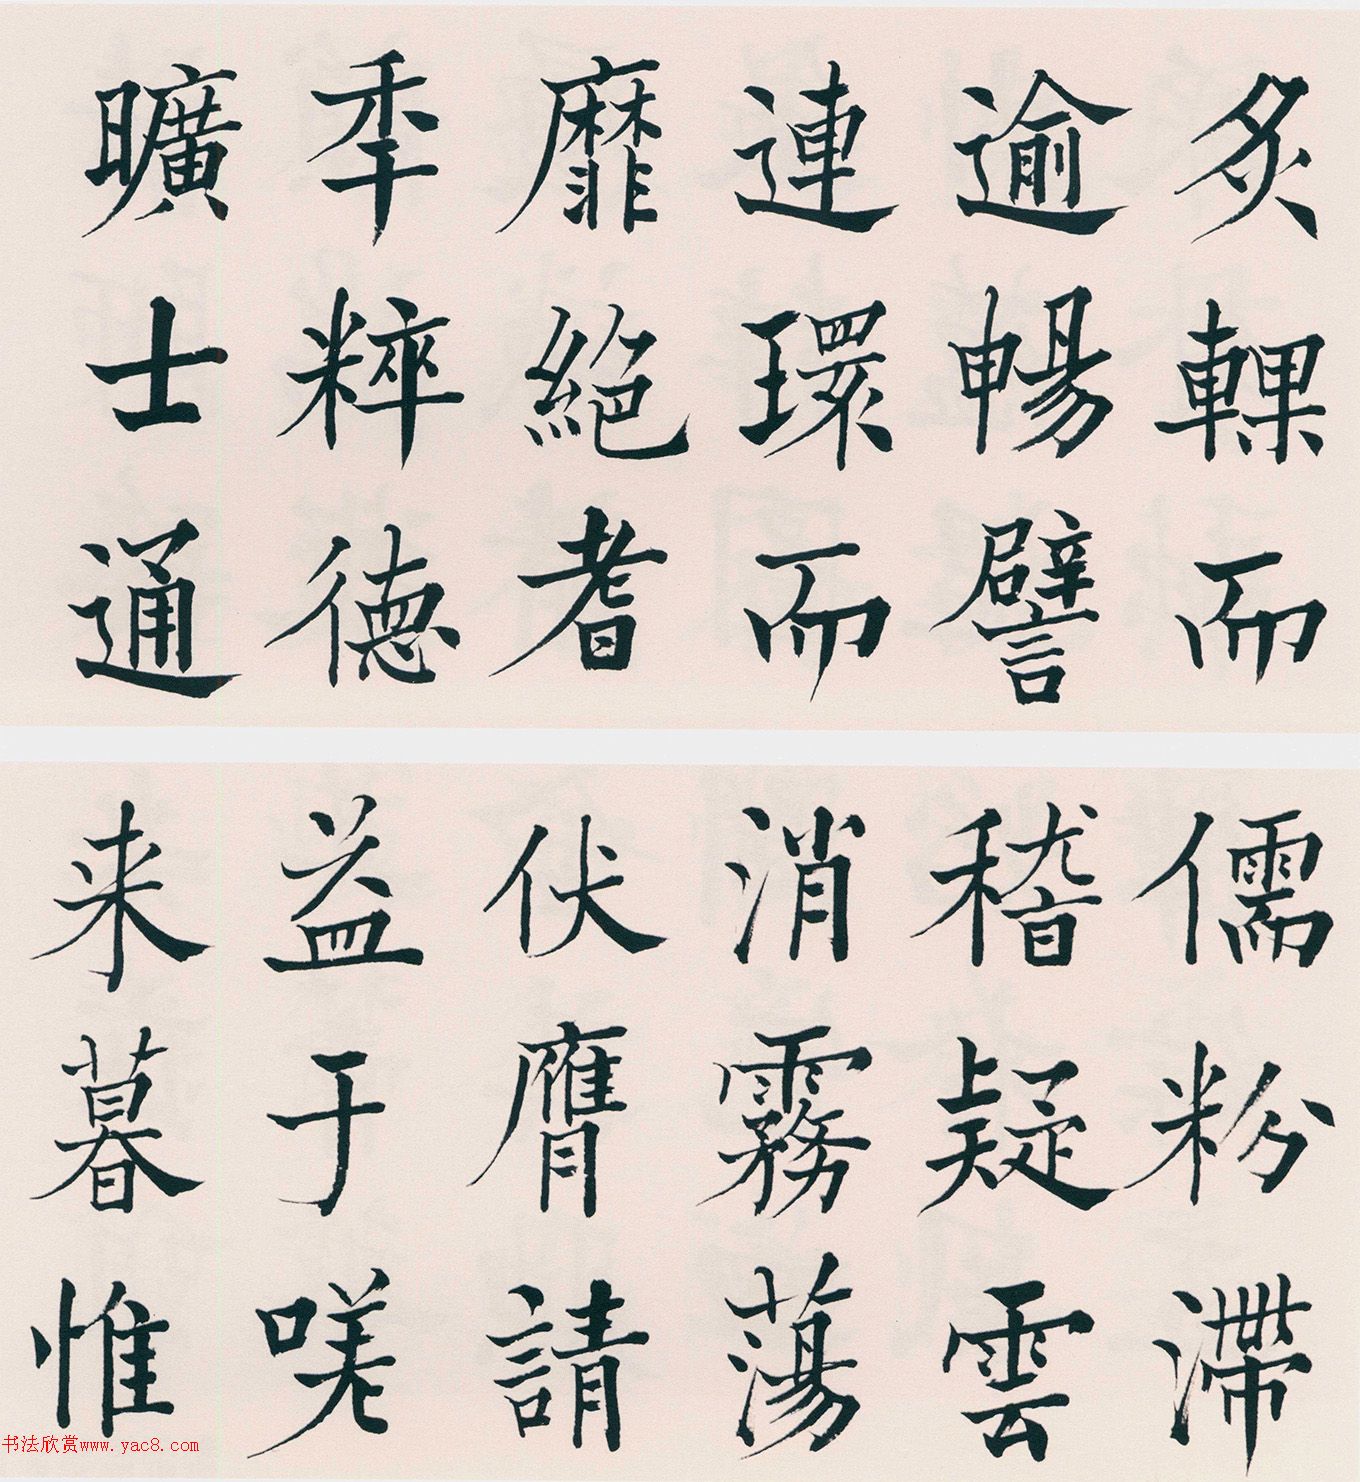 炙輠而
逾暢譬
連環而
靡絕耆
年粹德
曠士通
儒粉滯
稽疑雲
消霧蕩
伏膺請
益于嗟
来暮惟
书法欣赏www.yac8.com